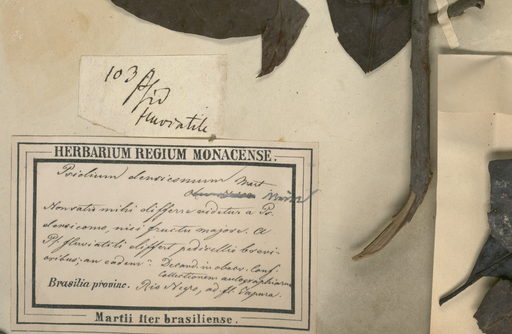 103
Psid
fluviatile
HERBARIUM REGIUM MONACENSE.
Psidium densicomum Mart
Non satis mihi differre videtur a Ps.
densicomo, nisi fructu majore. A
Ps. fluviatili differt pedicellis brevi-
oribus: an eadem? Decand. in observ. Conf.
Collectionem autographicam
Brasilia provinc. Rio Negro, ad fl. Yapura.
Martii Iter brasiliense.